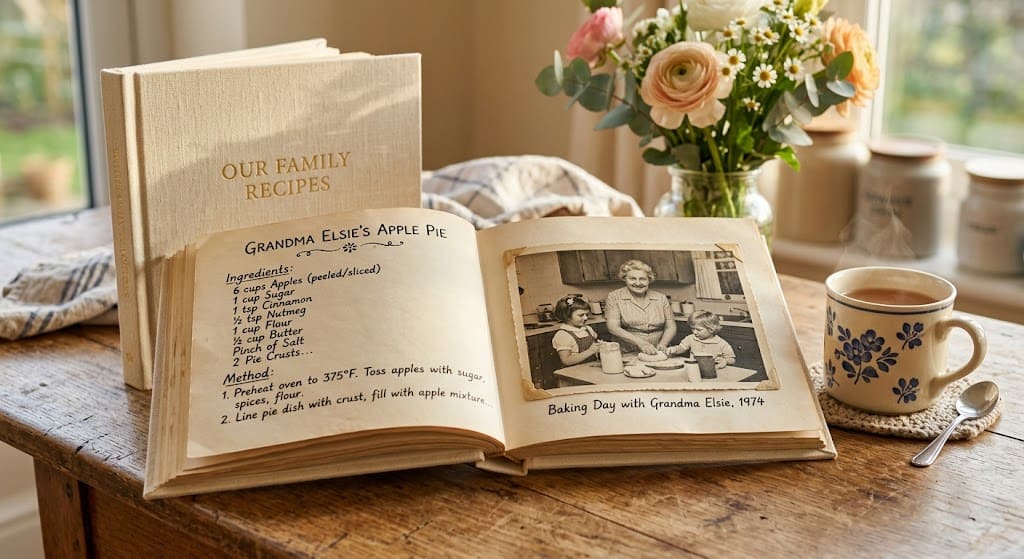 OUR FAMILY
RECIPES
GRANDMA ELSIE'S APPLE PIE
Ingredients:
6 cups Apples (peeled/sliced)
1 cup Sugar
1 tsp Cinnamon
½ tsp Nutmeg
1 cup Flour
½ cup Butter
Pinch of Salt
2 Pie Crusts...
Method:
1. Preheat oven to 375°F. Toss apples with sugar,
spices, flour.
2. Line pie dish with crust, fill with apple mixture...
Baking Day with Grandma Elsie, 1974